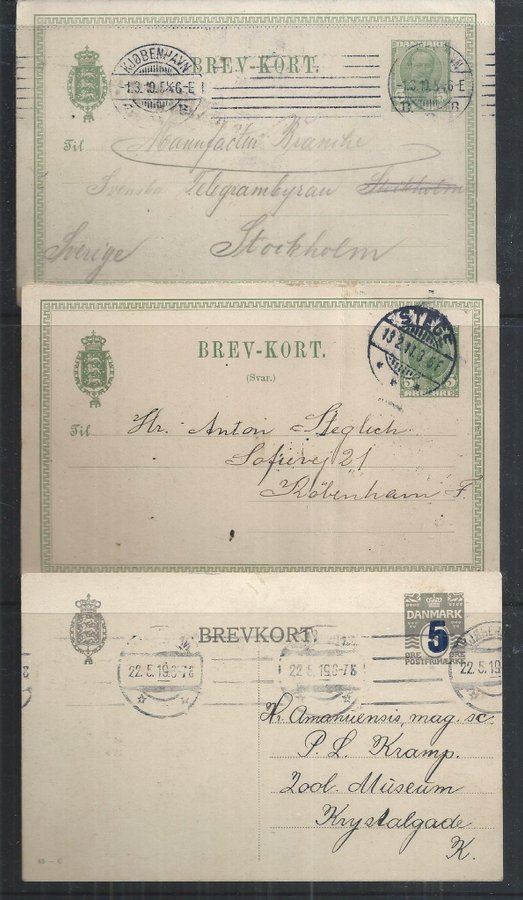 KJØBENHAVN
-1.3.10.5¼6-E
B
BREV-KORT.
DANMARK
-1.3.10.5¼6-E
B. B
Til Manufactur Branche
Svenska Telegrambyrån Stockholm
Sverige Stockholm
BREV-KORT.
(Svar.)
STEGE
13.2.11.3
5 5
ØRE ØRE
Til Hr. Anton Steglich
Sofievej 21
København F.
BREVKORT.
DANMARK
5
ØRE ØRE
POSTFRIMÆRKE
22.5.19.6-7E
22.5.19.6-7E
22.5.19
Hr. Amanuensis, mag. sc.
P. L. Kramp.
Zool. Museum
Krystalgade
K.